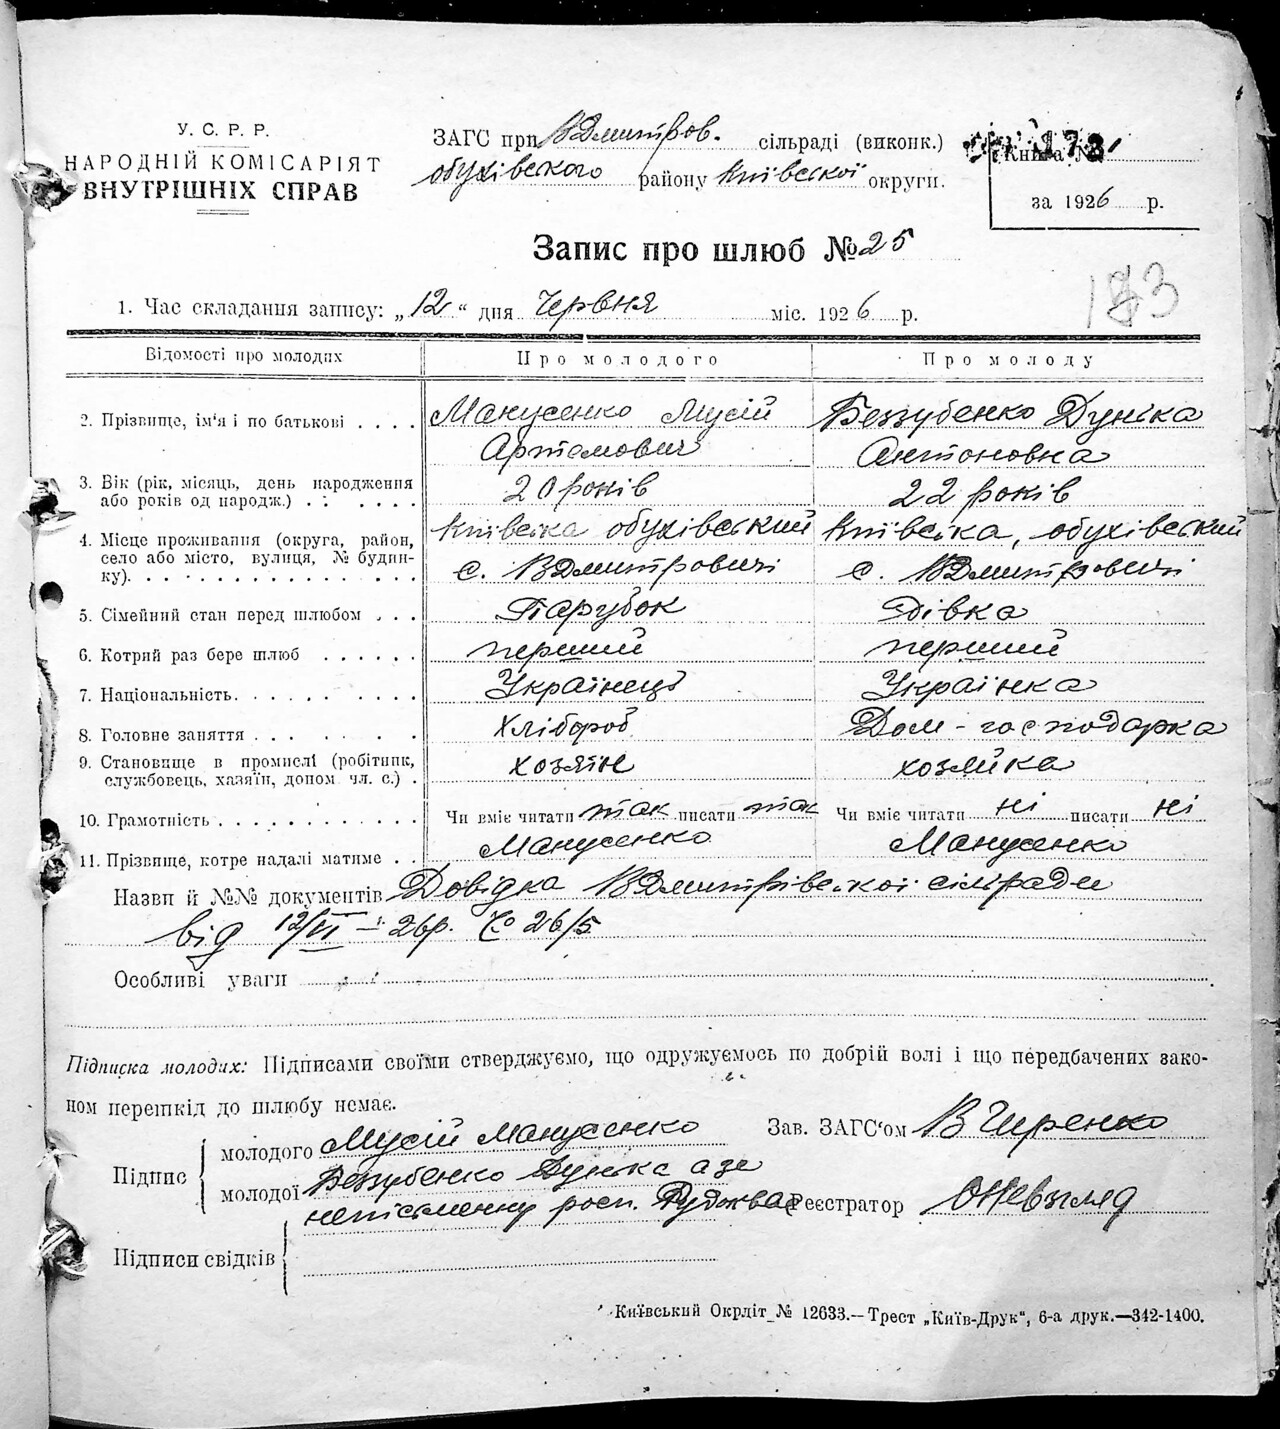 У. С. Р. Р.
НАРОДНІЙ КОМІСАРІЯТ
ВНУТРІШНІХ СПРАВ
ЗАГС при ВДмитров. сільраді (виконк.)
обухівського району Київської округи.
Книга №
за 1926 р.
Запис про шлюб № 25
183
1. Час складання запису: „12“ дня Червня міс. 1926 р.
Відомості про молодих Про молодого Про молоду
2. Прізвище, ім'я і по батькові . . . . Манусенко Мусій Беззубенко Дунька
Артемович Антоновна
3. Вік (рік, місяць, день народження
або років од народж.) . . . . . . 20 років 22 років
4. Місце проживання (округа, район,
село або місто, вулиця, № будин-
ку). . . . . . . . . . . . . . . .
Київська обухівський Київська, обухівський
с. ВДмитровичі с. ВДмитровичі
5. Сімейний стан перед шлюбом . . . Парубок Дівка
6. Котрий раз бере шлюб . . . . . . перший перший
7. Національність. . . . . . . . . . Українець Українка
8. Головне заняття . . . . . . . . Хлібороб Дом-господарка
9. Становище в промислі (робітник,
службовець, хазяїн, допом чл. с.) . хозяїн хозяйка
10. Грамотність . . . . . . . . . . . Чи вміє читати так писати так Чи вміє читати ні писати ні
11. Прізвище, котре надалі матиме . . Манусенко Манусенко
Назви й №№ документів Довідка ВДмитрівської сілради
від 12/VI - 26р. № 26/5
Особливі уваги
Підписка молодих: Підписами своїми стверджуємо, що одружуємось по добрій волі і що передбачених зако-
ном перешкід до шлюбу немає.
Підпис
молодого Мусій Манусенко
Зав. ЗАГС'ом В Чиренко
молодої Беззубенко Дунька а зе
непісьменну росп.
Реєстратор
Підписи свідків
Київський Окрліт № 12633.—Трест „Київ-Друк“, 6-а друк.—342-1400.